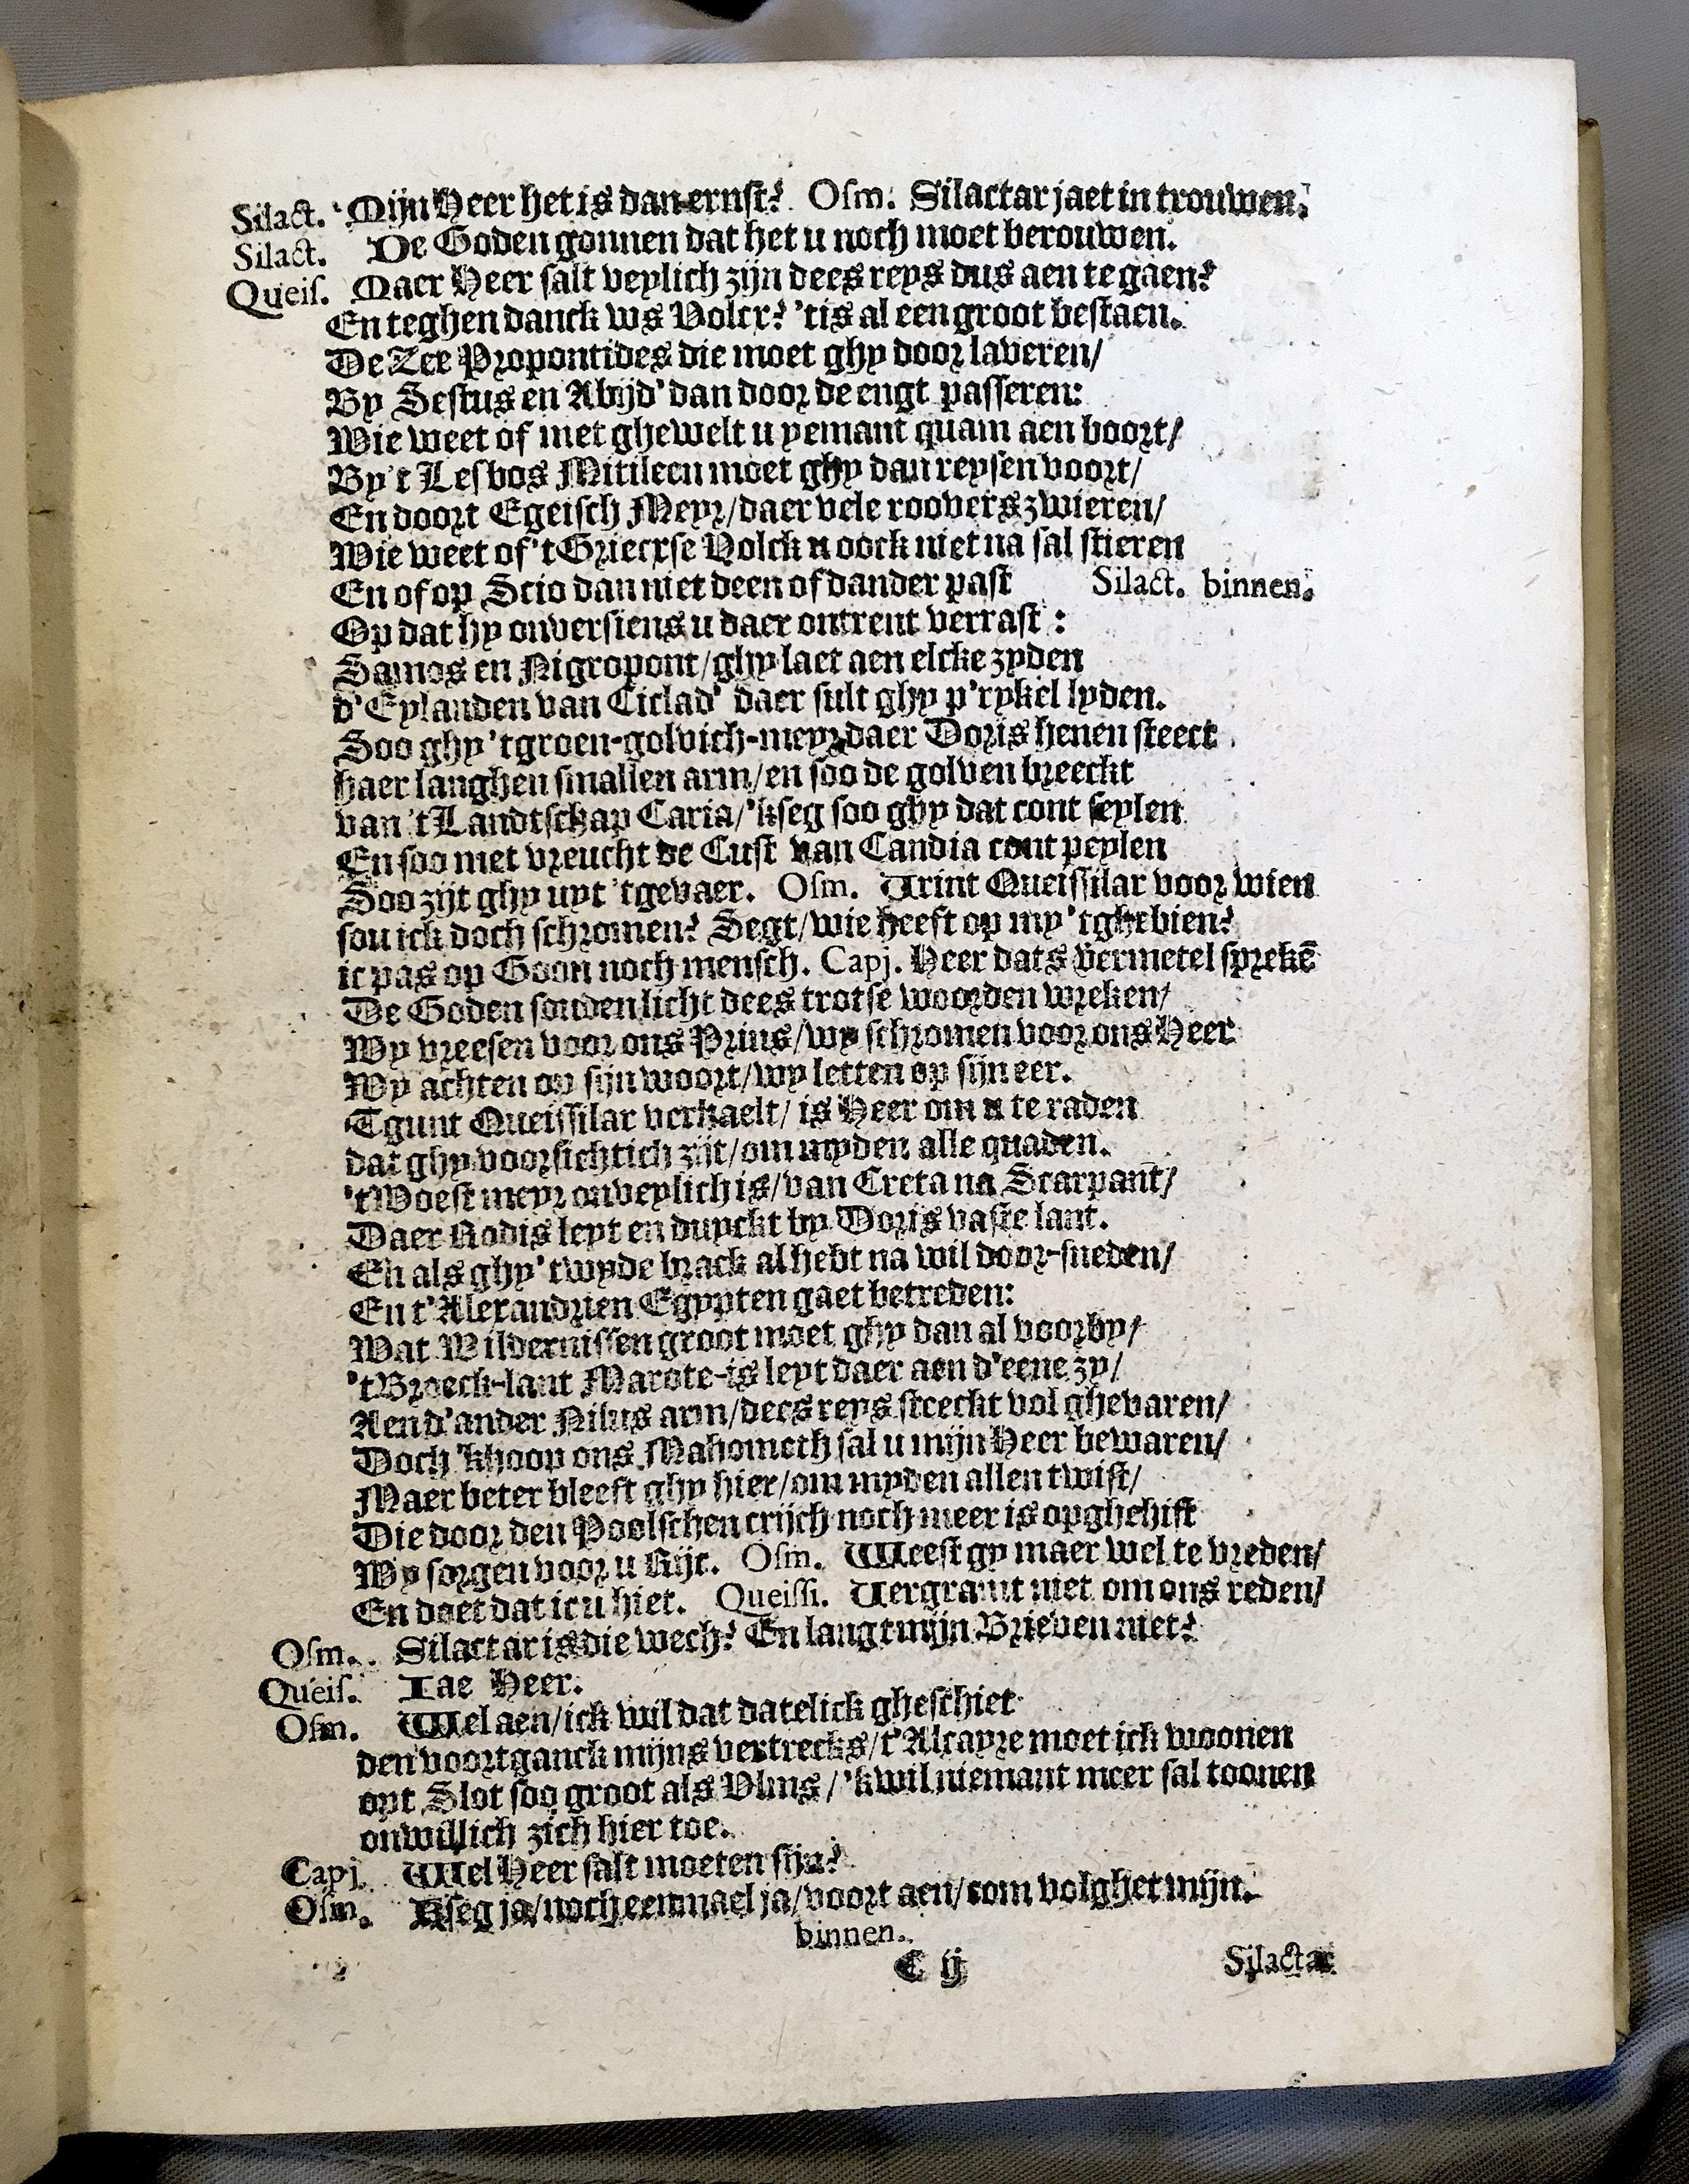 Silact. Mijn Heer het is dan ernst? Osm. Silactar jaet in trouwen.
Silact. De Goden gonnen dat het u noch moet berouwen.
Queis. Maer Heer salt veylich zijn dees reys dus aen te gaen?
En teghen danck ws Volcx? 'tis al een groot bestaen.
De Zee Propontides die moet ghy door laveren/
By Sestus en Abijd' dan door de engt passeren:
Wie weet of met ghewelt u yemant quam aen boort/
By't Lesbos Mitileen moet ghy dan reysen voort/
En doort Egeisch Meyr/daer vele roovers zwieren/
Wie weet of 't Griecxse Volck u oock niet na sal stieren
En of op Scio dan niet deen of dander past Silact. binnen.
Op dat hy onversiens u daer ontrent verrast:
Samos en Nigropont/ghy laet aen elcke zyden
d'Eylanden van Ciclad' daer sult ghy p'rykel lyden.
Soo ghy 'tgroen-golvich-meyr daer Doris henen steect
haer langhen smallen arm/en soo de golven breeckt
van 't Landtschap Caria/'kseg soo ghy dat cont seylen
En soo met vreucht de Cust van Candia cont peylen
Soo zijt ghy uyt 'tgevaer. Osm. Trint Queissilar voor wien
sou ick doch schromen? Segt/wie heeft op my 'tghebien?
ic pas op Goon noch mensch. Capj. Heer dats vermetel sprekē
De Goden souden licht dees trotse woorden wreken/
Wy vreesen voor ons Prins/wy schromen voor ons Heer
Wy achten op sijn woort/wy letten op sijn eer.
Tgunt Queissilar verhaelt/ is Heer om u te raden
dat ghy voorsichtich zijt/om myden alle quaden.
't Woest meyr onveylich is/van Creta na Scarpant/
Daer Rodis leyt en duyckt by Doris vaste lant.
En als ghy 'twyde brack al hebt na wil door-sneden/
En t'Alexandrien Egypten gaet betreden:
Wat Wildernissen groot moet ghy dan al voorby/
't Broeck-lant Marote-is leyt daer aen d'eene zy/
Aen d'ander Nilus arm/dees reys steeckt vol ghevaren/
Doch 'khoop ons Mahometh sal u mijn Heer bewaren/
Maer beter bleeft ghy hier/om myden allen twist/
Die door den Poolschen crijch noch meer is opghehist
Wy sorgen voor u Rijc. Osm. Weest gy maer wel te vreden/
En doet dat ic u hiet. Queissi. Vergramt niet om ons reden/
Osm. Silactar is die wech? En langt mijn Brieven niet?
Queis. Iae Heer.
Osm. Wel aen/ick wil dat datelick gheschiet
den voortganck mijns vertrecks/t'Alcayre moet ick woonen
opt Slot soo groot als Vlms/'kwil niemant meer sal toonen
onwillich zich hier toe.
Capj. Wel Heer salt moeten sijn?
Osm. Kseg ja/noch eenmael ja/voort aen/com volghet mijn.
binnen.
C ij Silactar